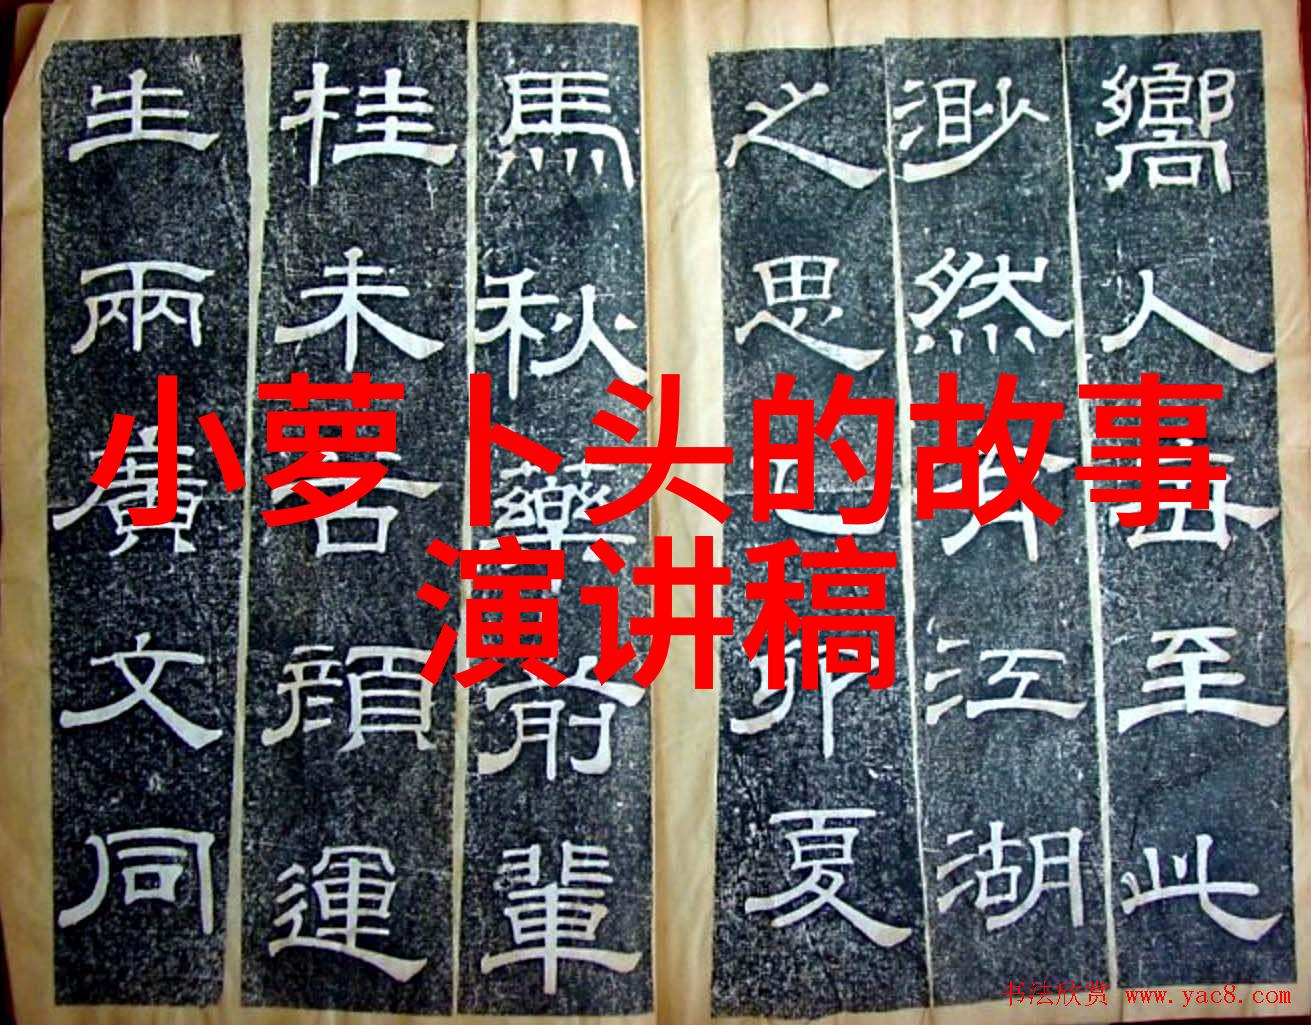 嚮人至此
渺然有江湖
之思己卯夏
馬秋藥前輩
桂未谷顏運
生兩廣文同
小萝卜头的故事
演讲稿
书法欣赏 www.yac8.com